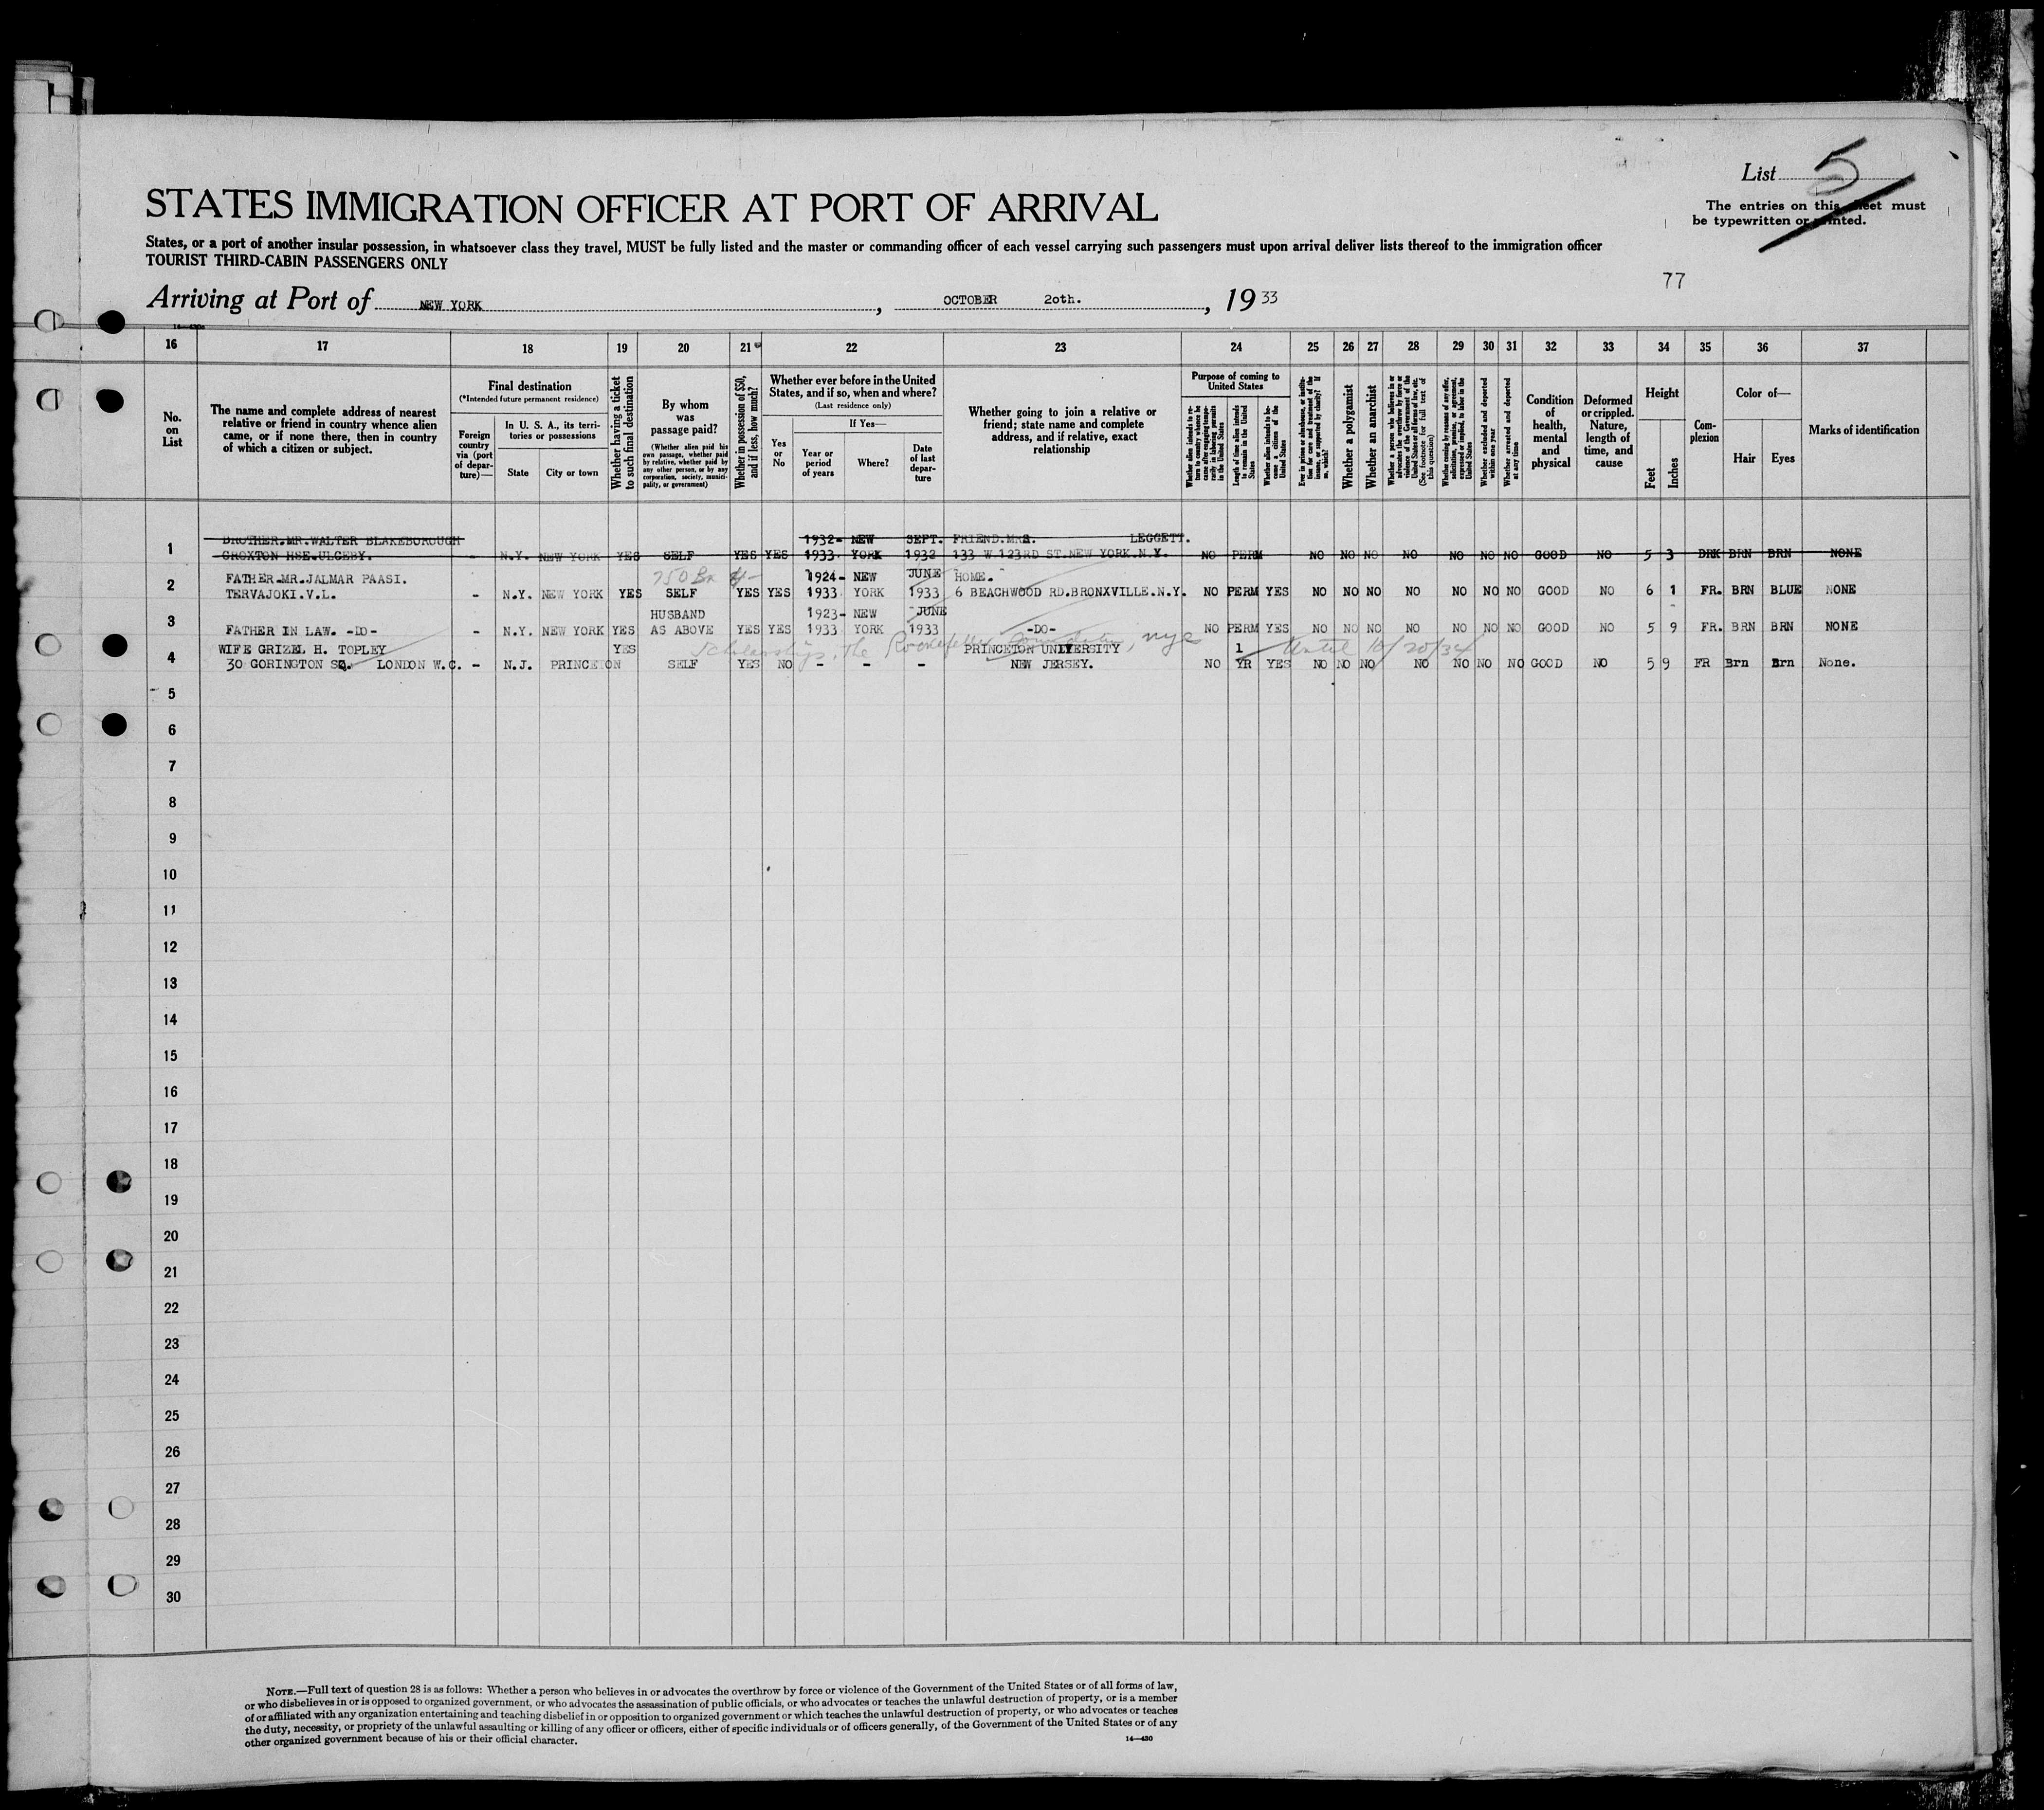 List 5
The entries on this sheet must
be typewritten or printed.
STATES IMMIGRATION OFFICER AT PORT OF ARRIVAL
States, or a port of another insular possession, in whatsoever class they travel, MUST be fully listed and the master or commanding officer of each vessel carrying such passengers must upon arrival deliver lists thereof to the immigration officer
TOURIST THIRD-CABIN PASSENGERS ONLY
77
Arriving at Port of NEW YORK, OCTOBER 20th., 1933
16 17 18 19 20 21 22 23 24 25 26 27 28 29 30 31 32 33 34 35 36 37
No.
on
List
The name and complete address of nearest
relative or friend in country whence alien
came, or if none there, then in country
of which a citizen or subject.
Final destination
(*Intended future permanent residence)
Foreign
country
via (port
of depar-
ture)—
In U. S. A., its terri-
tories or possessions
State
City or town
Whether having a ticket
to such final destination
By whom
was
passage paid?
(Whether alien paid his
own passage, whether paid
by relative, whether paid by
any other person, or by any
corporation, society, munici-
pality, or government)
Whether in possession of $50,
and if less, how much?
Whether ever before in the United
States, and if so, when and where?
(Last residence only)
Yes
or
No
If Yes—
Year or
period
of years
Where?
Date
of last
depar-
ture
Whether going to join a relative or
friend; state name and complete
address, and if relative, exact
relationship
Purpose of coming to
United States
Whether alien intends to re-
turn to country whence he
came after engaging tempo-
rarily in laboring pursuits
in the United States
Length of time alien intends
to remain in the United
States
Whether alien intends to be-
come a citizen of the
United States
Ever in prison or almshouse, or institu-
tion for care and treatment of the
insane, or supported by charity? If
so, which?
Whether a polygamist
Whether an anarchist
Whether a person who believes in or
advocates the overthrow by force or
violence of the Government of the
United States or all forms of law, etc.
(See footnote for full text of
this question)
Whether coming by reason of any offer,
solicitation, promise, or agreement,
expressed or implied, to labor in the
United States
Whether excluded and deported
within one year
Whether arrested and deported
at any time
Condition
of
health,
mental
and
physical
Deformed
or crippled.
Nature,
length of
time, and
cause
Height
Feet
Inches
Com-
plexion
Color of—
Hair
Eyes
Marks of identification
BROTHER.MR.WALTER BLAKEBOROUGH 1932- NEW SEPT. FRIEND.MRS. LEGGETT.
1 CROXTON HSE.ULCEBY. - N.Y. NEW YORK YES SELF YES YES 1933 YORK 1932 133 W.123RD ST.NEW YORK.N.Y. NO PERM NO NO NO NO NO NO NO GOOD NO 5 3 DRK BRN BRN NONE
FATHER.MR.JALMAR PAASI. 1924- NEW JUNE HOME.
2 TERVAJOKI.V.L. - N.Y. NEW YORK YES SELF YES YES 1933 YORK 1933 6 BEACHWOOD RD.BRONXVILLE.N.Y. NO PERM YES NO NO NO NO NO NO NO GOOD NO 6 1 FR. BRN BLUE NONE
HUSBAND 1923- NEW JUNE
3 FATHER IN LAW. -DO- - N.Y. NEW YORK YES AS ABOVE YES YES 1933 YORK 1933 -DO- NO PERM YES NO NO NO NO NO NO NO GOOD NO 5 9 FR. BRN BRN NONE
Scholarship, The Rockefeller Foundation, nyc Until 10/20/34
WIFE GRIZEL H. TOPLEY YES PRINCETON UNIVERSITY 1
4 30 GORINGTON SQ. LONDON W.C. - N.J. PRINCETON SELF YES NO - - - NEW JERSEY. NO YR YES NO NO NO NO NO NO NO GOOD NO 5 9 FR Brn Brn None.
5
6
7
8
9
10
11
12
13
14
15
16
17
18
19
20
21
22
23
24
25
26
27
28
29
30
NOTE.—Full text of question 28 is as follows: Whether a person who believes in or advocates the overthrow by force or violence of the Government of the United States or of all forms of law,
or who disbelieves in or is opposed to organized government, or who advocates the assassination of public officials, or who advocates or teaches the unlawful destruction of property, or is a member
of or affiliated with any organization entertaining and teaching disbelief in or opposition to organized government or which teaches the unlawful destruction of property, or who advocates or teaches
the duty, necessity, or propriety of the unlawful assaulting or killing of any officer or officers, either of specific individuals or of officers generally, of the Government of the United States or of any
other organized government because of his or their official character.
14—430